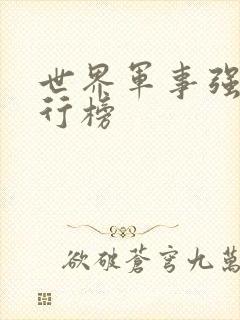 世界軍事强
行榜
欲破蒼穹九萬